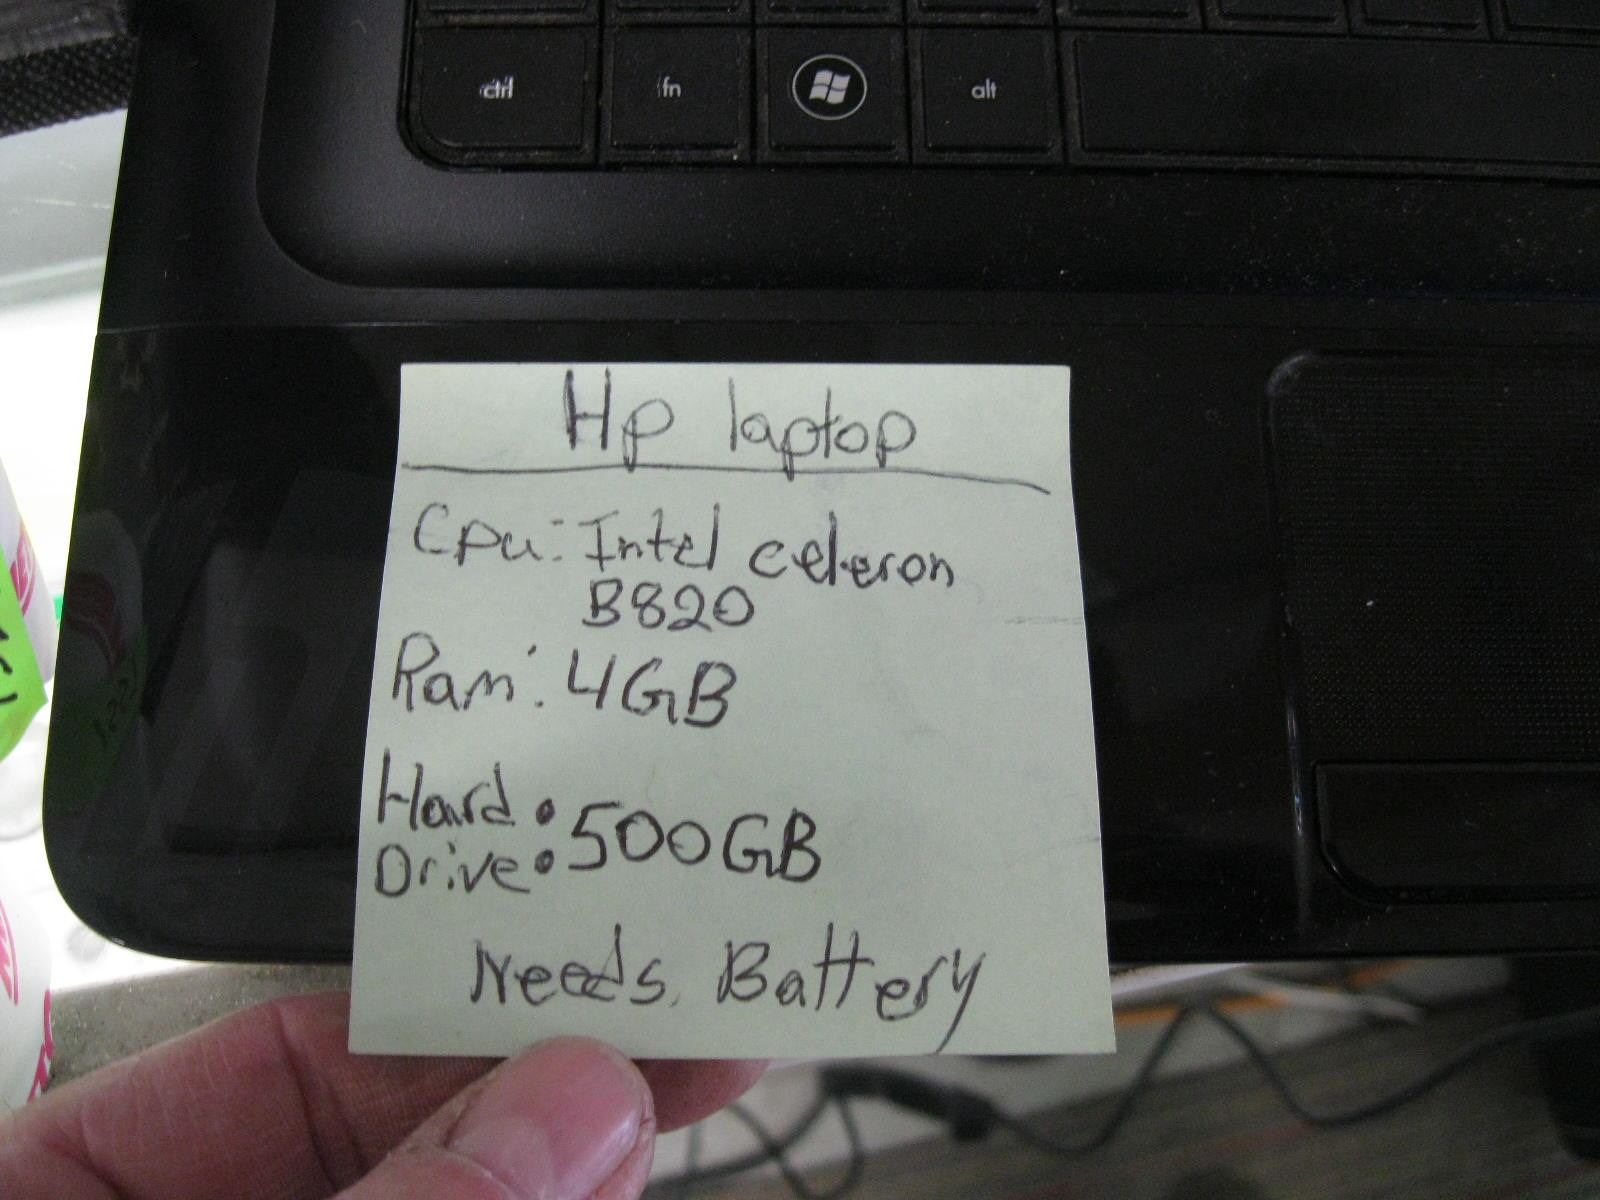 ctrl fn alt
Hp laptop
Cpu: Intel celeron
B820
Ram: 4GB
Hard :
Drive: 500GB
Needs Battery